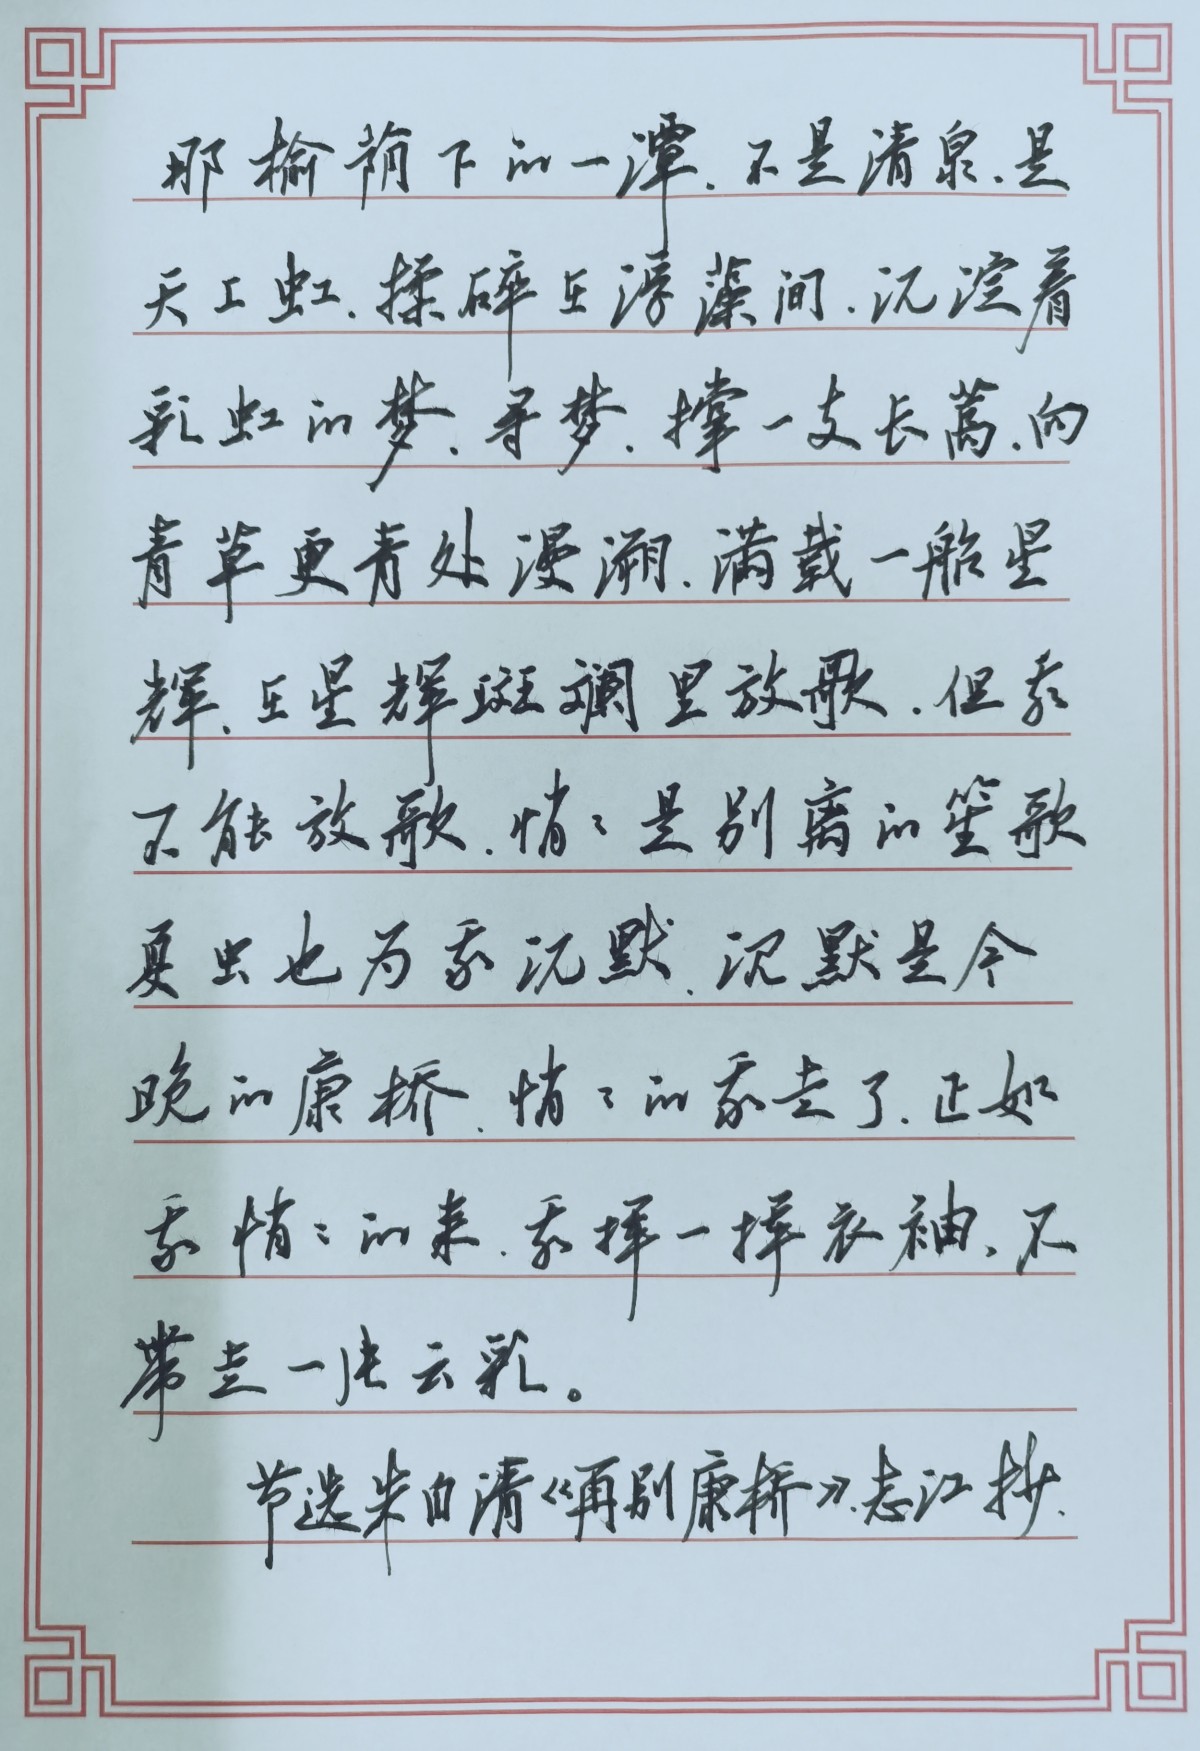 那榆荫下的一潭、不是清泉、是
天上虹、揉碎在浮藻间、沉淀着
彩虹的梦、寻梦、撑一支长蒿、向
青草更青处漫溯、满载一船星
辉、在星辉斑斓里放歌、但我
不能放歌、悄々是别离的笙歌
夏虫也为我沉默、沉默是今
晚的康桥、悄々的我走了、正如
我悄々的来、我挥一挥衣袖、不
带走一片云彩。
节选朱自清《再别康桥》、志江抄、